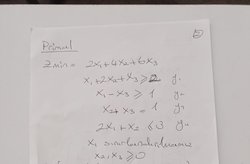 Primal
Zmin = 2x₁+4x₂+6x₃
x₁+2x₂+x₃ ≥ 2 y₁
x₁-x₃ ≥ 1 y₂
x₂+x₃ = 1 y₃
2x₁+x₂ ≤ 3 y₄
x₁ sınırlandırılmamış
x₂,x₃ ≥ 0